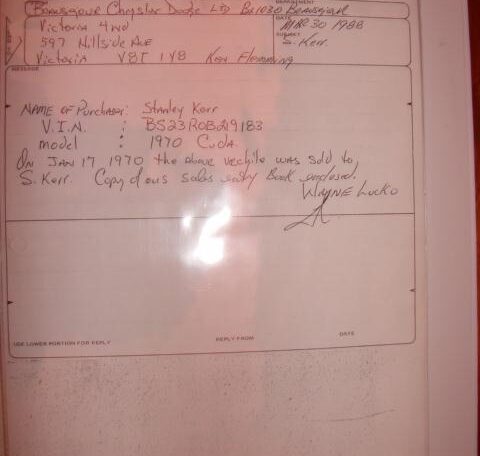 Beausejour Chrysler Dodge LTD Bx1030 Beausejour
DEPARTMENT
Victoria 4WD
DATE MAR 30 1988
597 Hillside Ave
SUBJECT S. Kerr
Victoria V8T 1Y8 Ken Flemming
MESSAGE
NAME OF Purchaser: Stanley Kerr
V.I.N. : BS23R0B219183
model : 1970 Cuda
ON JAN 17 1970 the above vechile was sold to
S. Kerr. Copy of our sales entry Book enclosed.
WAYNE LUCKO
USE LOWER PORTION FOR REPLY
REPLY FROM
DATE